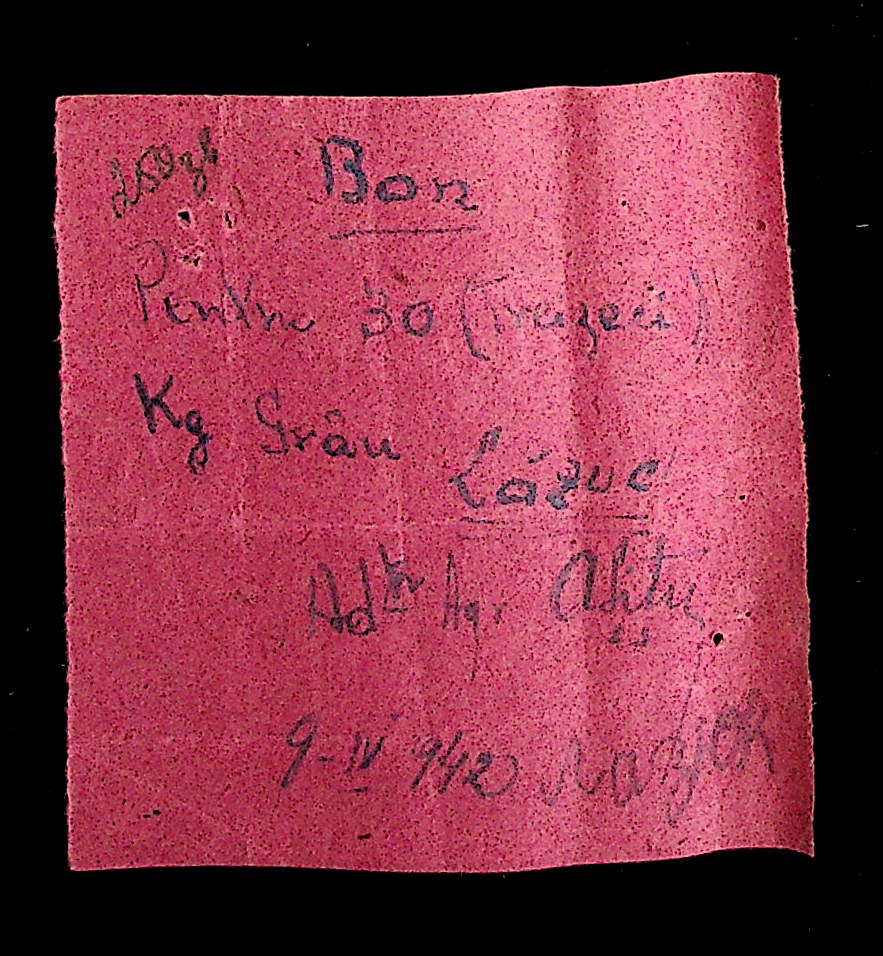 Bon
Pentru 30 (treizeci)
Kg Grâu
Lázuc
Adtr Agr.
9-IV 942